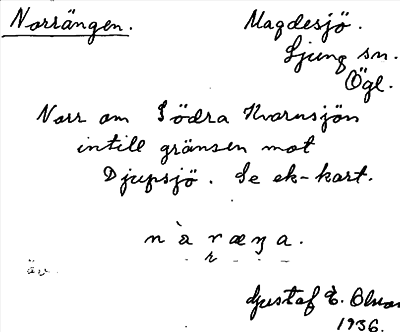 Norrängen.
Magdesjö.
Ljung sn.
Ögl.
Norr om Södra Kvarnsjön
intill gränsen mot
Djupsjö. Se ek-kart.
äv.
Gustaf E. Olson
1936.